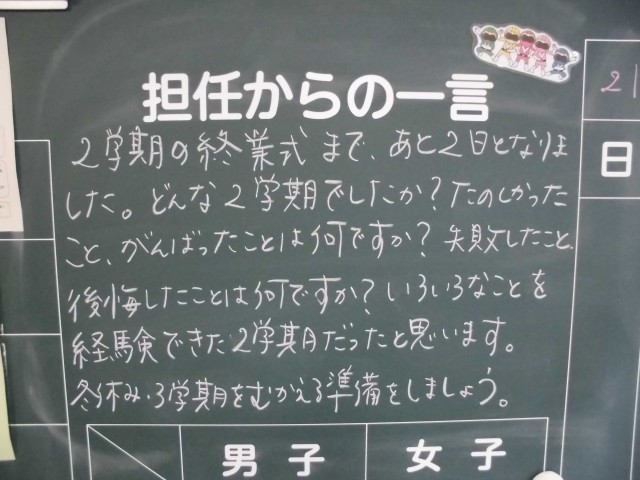 担任からの一言
2学期の終業式まで、あと2日となりま
した。どんな2学期でしたか？たのしかった
こと、がんばったことは何ですか？失敗したこと、
後悔したことは何ですか？いろいろなことを
経験できた2学期だったと思います。
冬休み・3学期をむかえる準備をしましょう。
男子
女子
21
日